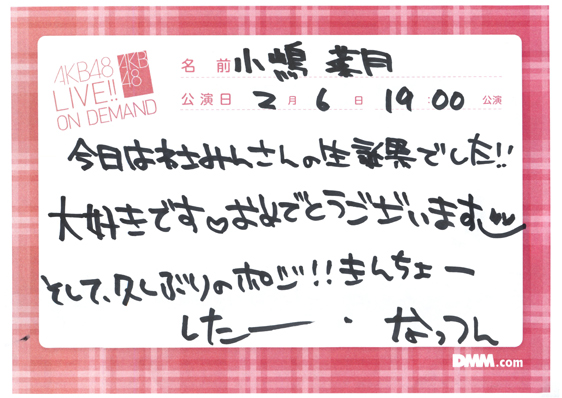 AKB48
LIVE!!
ON DEMAND
AKB
48
名前 小嶋 菜月
公演日 2月6日 19:00 公演
今日はさんの生誕祭でした!!
大好きです♡おめでとうございます
そして、久しぶりのポジ!!きんちょー
したー・ なっつん
DMM.com